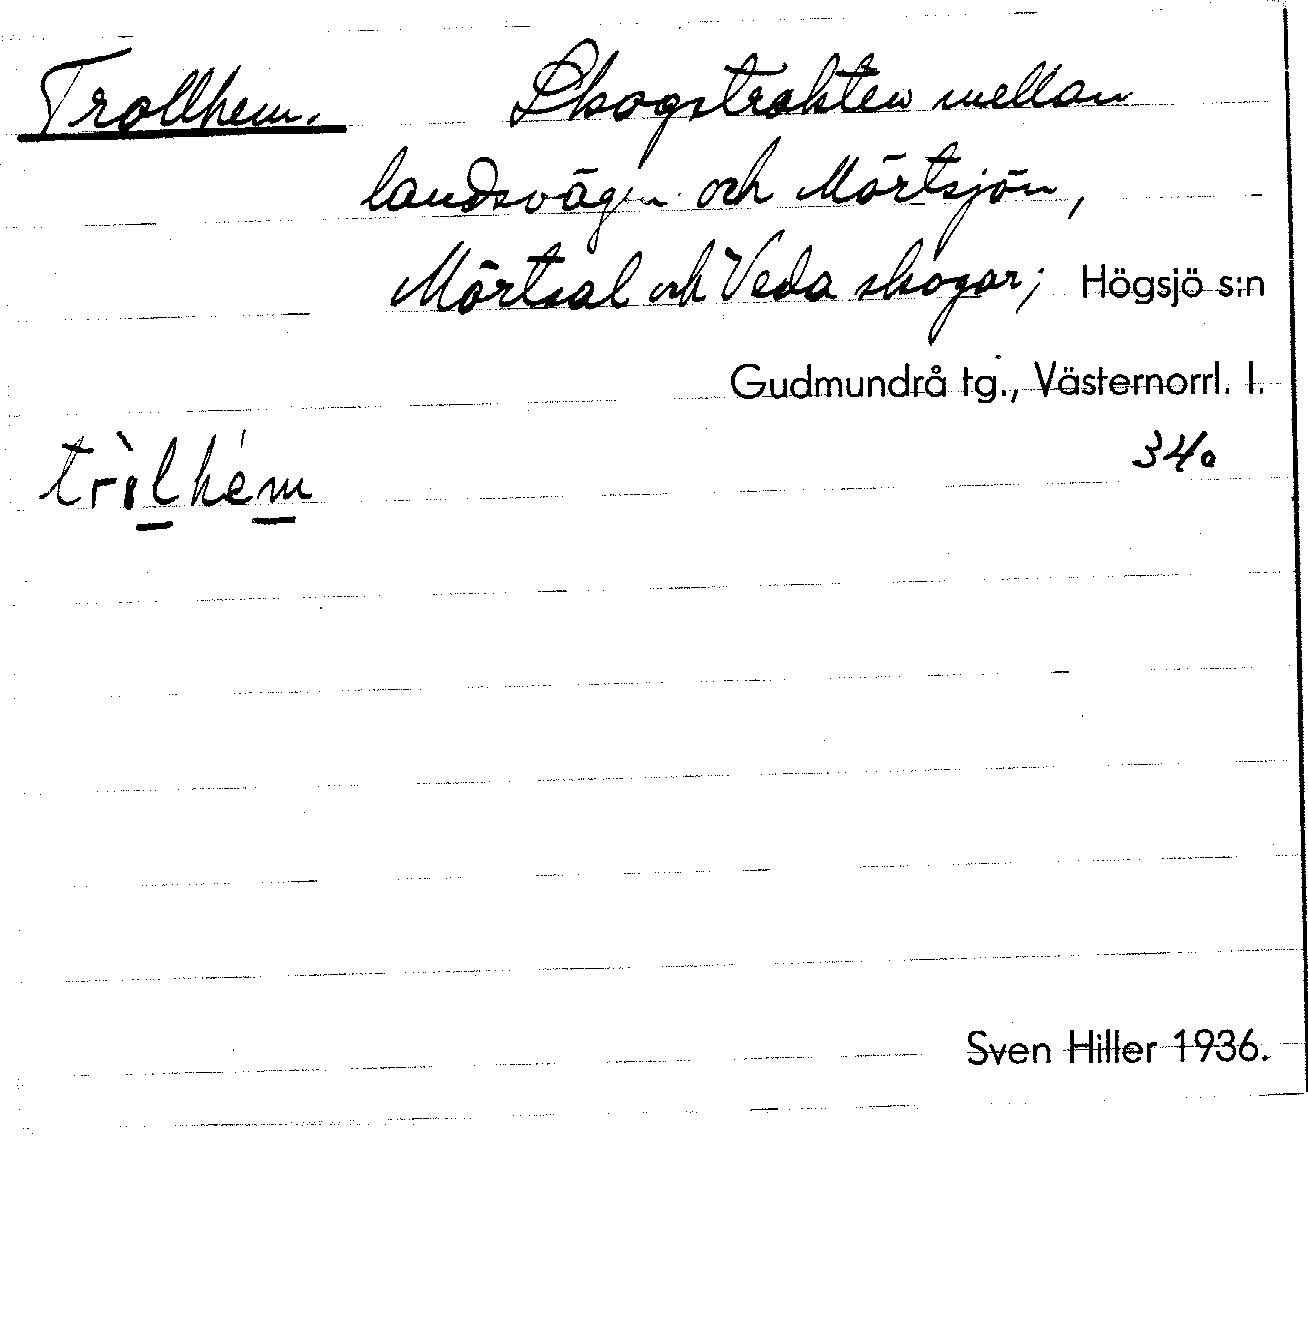 Trollhem. Skogstrakten mellan
landsvägen och Mörtsjön,
Mörtsal och Veda skogar; Högsjö s:n
Gudmundrå tg., Västernorrl. l.
34.
Sven Hiller 1936.